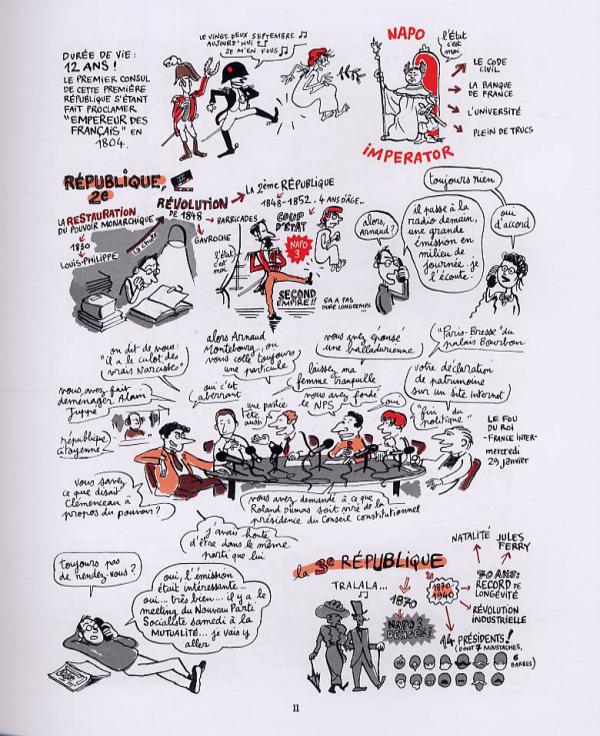 DURÉE DE VIE :
12 ANS !
LE PREMIER CONSUL
DE CETTE PREMIÈRE
RÉPUBLIQUE S'ÉTANT
FAIT PROCLAMER
"EMPEREUR DES
FRANÇAIS" EN
1804.
LE VINGT DEUX SEPTEMBRE
AUJOURD'HUI
JE M'EN FOUS
NAPO
l'État
c'est
moi
LE CODE
CIVIL
LA BANQUE
DE FRANCE
L'UNIVERSITÉ
PLEIN DE TRUCS
IMPERATOR
RÉPUBLIQUE,
2e
LA RESTAURATION
DU POUVOIR MONARCHIQUE
1830
LOUIS-PHILIPPE
LA CHUTE
RÉVOLUTION
DE 1848
BARRICADES
GAVROCHE
LA 2ème RÉPUBLIQUE
1848-1852. 4 ANS D'ÂGE...
l'état
c'est
moi
COUP
D'ÉTAT
NAPO
3
SECOND
EMPIRE !!
ÇA A PAS
DURÉ LONGTEMPS
alors,
Arnaud ?
toujours rien
il passe à la
radio demain,
une grande
émission en
milieu de
journée. je
l'écoute.
oui
d'accord
on dit de vous :
"il a le culot des
vrais Narcisses"
alors Arnaud
Montebourg, on
vous colle toujours
une particule
vous avez épousé
une balladurienne
"Paris-Bresse" du
palais Bourbon
vous avez fait
déménager Alain
Juppé
oui c'est
aberrant
une partie
été
aussi
laissez ma
femme tranquille
vous avez fondé
le NPS
oui
votre déclaration
de patrimoine
sur un site Internet
"fin du
politique"
république
citoyenne
LE FOU
DU ROI
-FRANCE INTER-
mercredi
29 janvier
vous savez
ce que disait
Clémenceau à
propos du pouvoir ?
vous avez demandé à ce que
Roland Dumas soit viré de la
présidence du Conseil constitutionnel
j'avais honte
d'être dans le même
parti que lui
toujours pas
de rendez-vous ?
oui, l'émission
était intéressante...
oui... très bien... il y a le
meeting du Nouveau Parti
Socialiste samedi à la
MUTUALITÉ... je vais y
aller
la 3e RÉPUBLIQUE
TRALALA...
1870
NAPO 3
DEHORS !
1870
1940
NATALITÉ
JULES
FERRY
70 ANS :
RECORD DE
LONGÉVITÉ
RÉVOLUTION
INDUSTRIELLE
14 PRÉSIDENTS !
(DONT 7 MOUSTACHES,
6
BARBES)
11